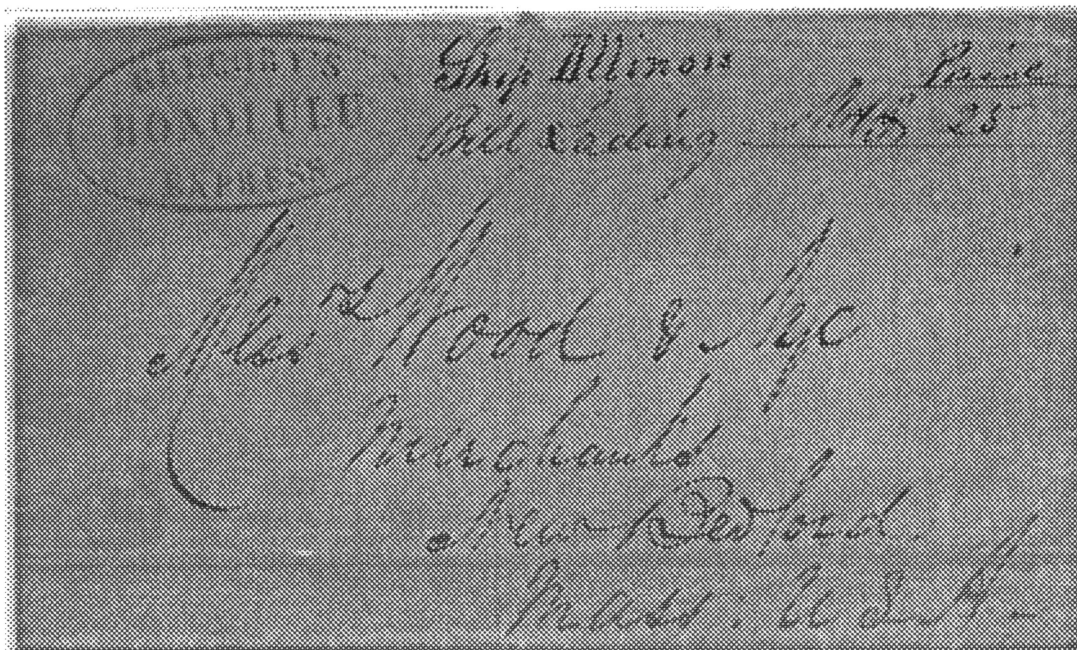 GREGORY'S
HONOLULU
EXPRESS
Ship Illinois
Bill Lading
25
Mess rs Wood & Nye
Merchants
New Bedford.
Mass: U S A-